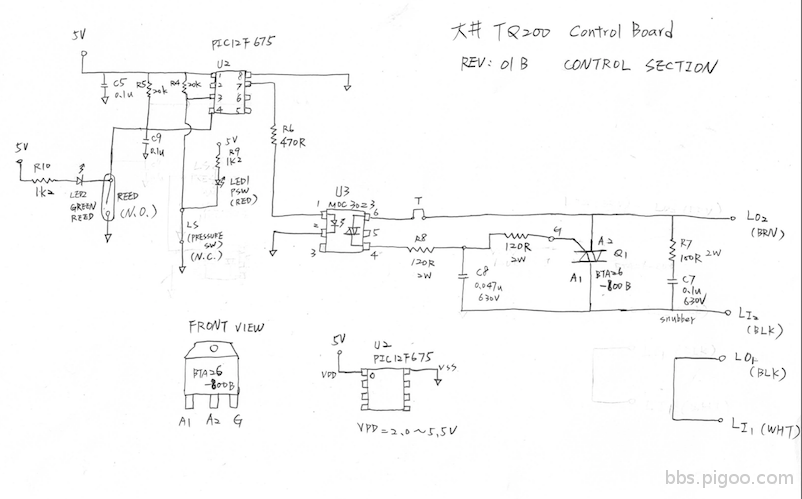 大井 TQ200 Control Board
REV: 01B CONTROL SECTION
5V
PIC12F675
U2
C5
0.1u
R5
20k
R4
20k
1
2
3
4
8
7
6
5
C9
0.1u
5V
R10
1K2
LED2
GREEN
REED
REED
(N.O.)
5V
R9
1K2
LED1
PSW
(RED)
LS
(PRESSURE
SW)
(N.C.)
R6
470R
U3
MOC3023
1
2
3
6
5
4
T
R8
120R
2W
C8
0.047u
630V
120R
2W
G
A2
Q1
A1
BTA26
-800B
R7
100R 2W
C7
0.1u
630V
snubber
LO2
(BRN)
LI2
(BLK)
LO1
(BLK)
LI1 (WHT)
FRONT VIEW
BTA26
-800B
A1 A2 G
U2
PIC12F675
5V
VDD
VSS
VDD=2.0~5.5V
bbs.pigoo.com